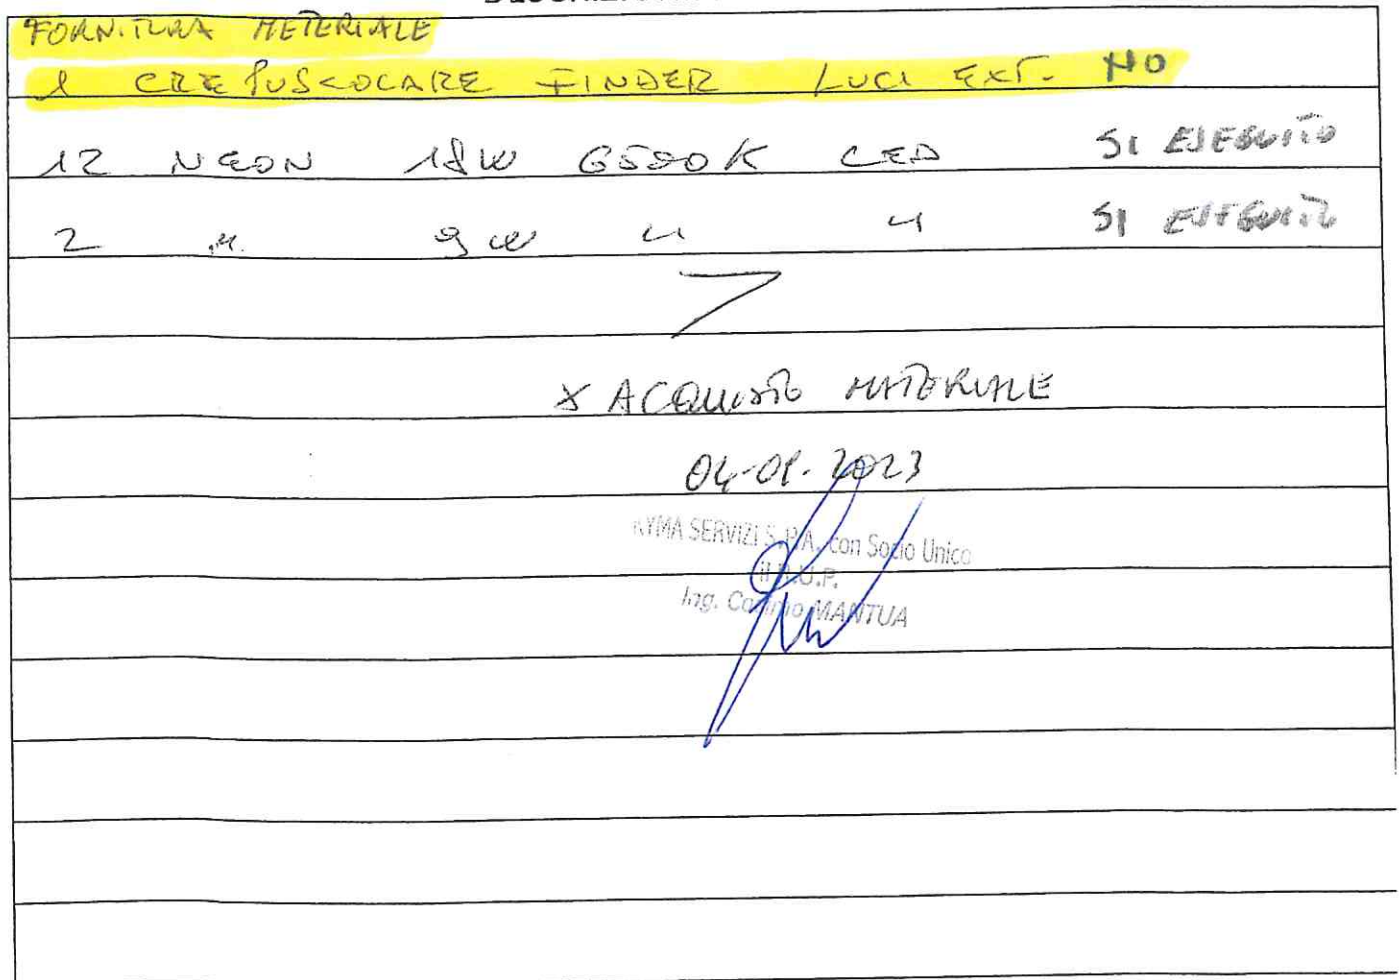 FORNITURA METERIALE
1 CREPUSCOLARE FINDER LUCI EXT. NO
12 NEON 18W 6500K LED SI ESEGUITO
2 " 9W " " SI ESEGUITO
X ACQUISTO MATERIALE
2023
KYMA SERVIZI S.P.A. con Socio Unico
il R.U.P.
Ing. Cosimo MANTUA